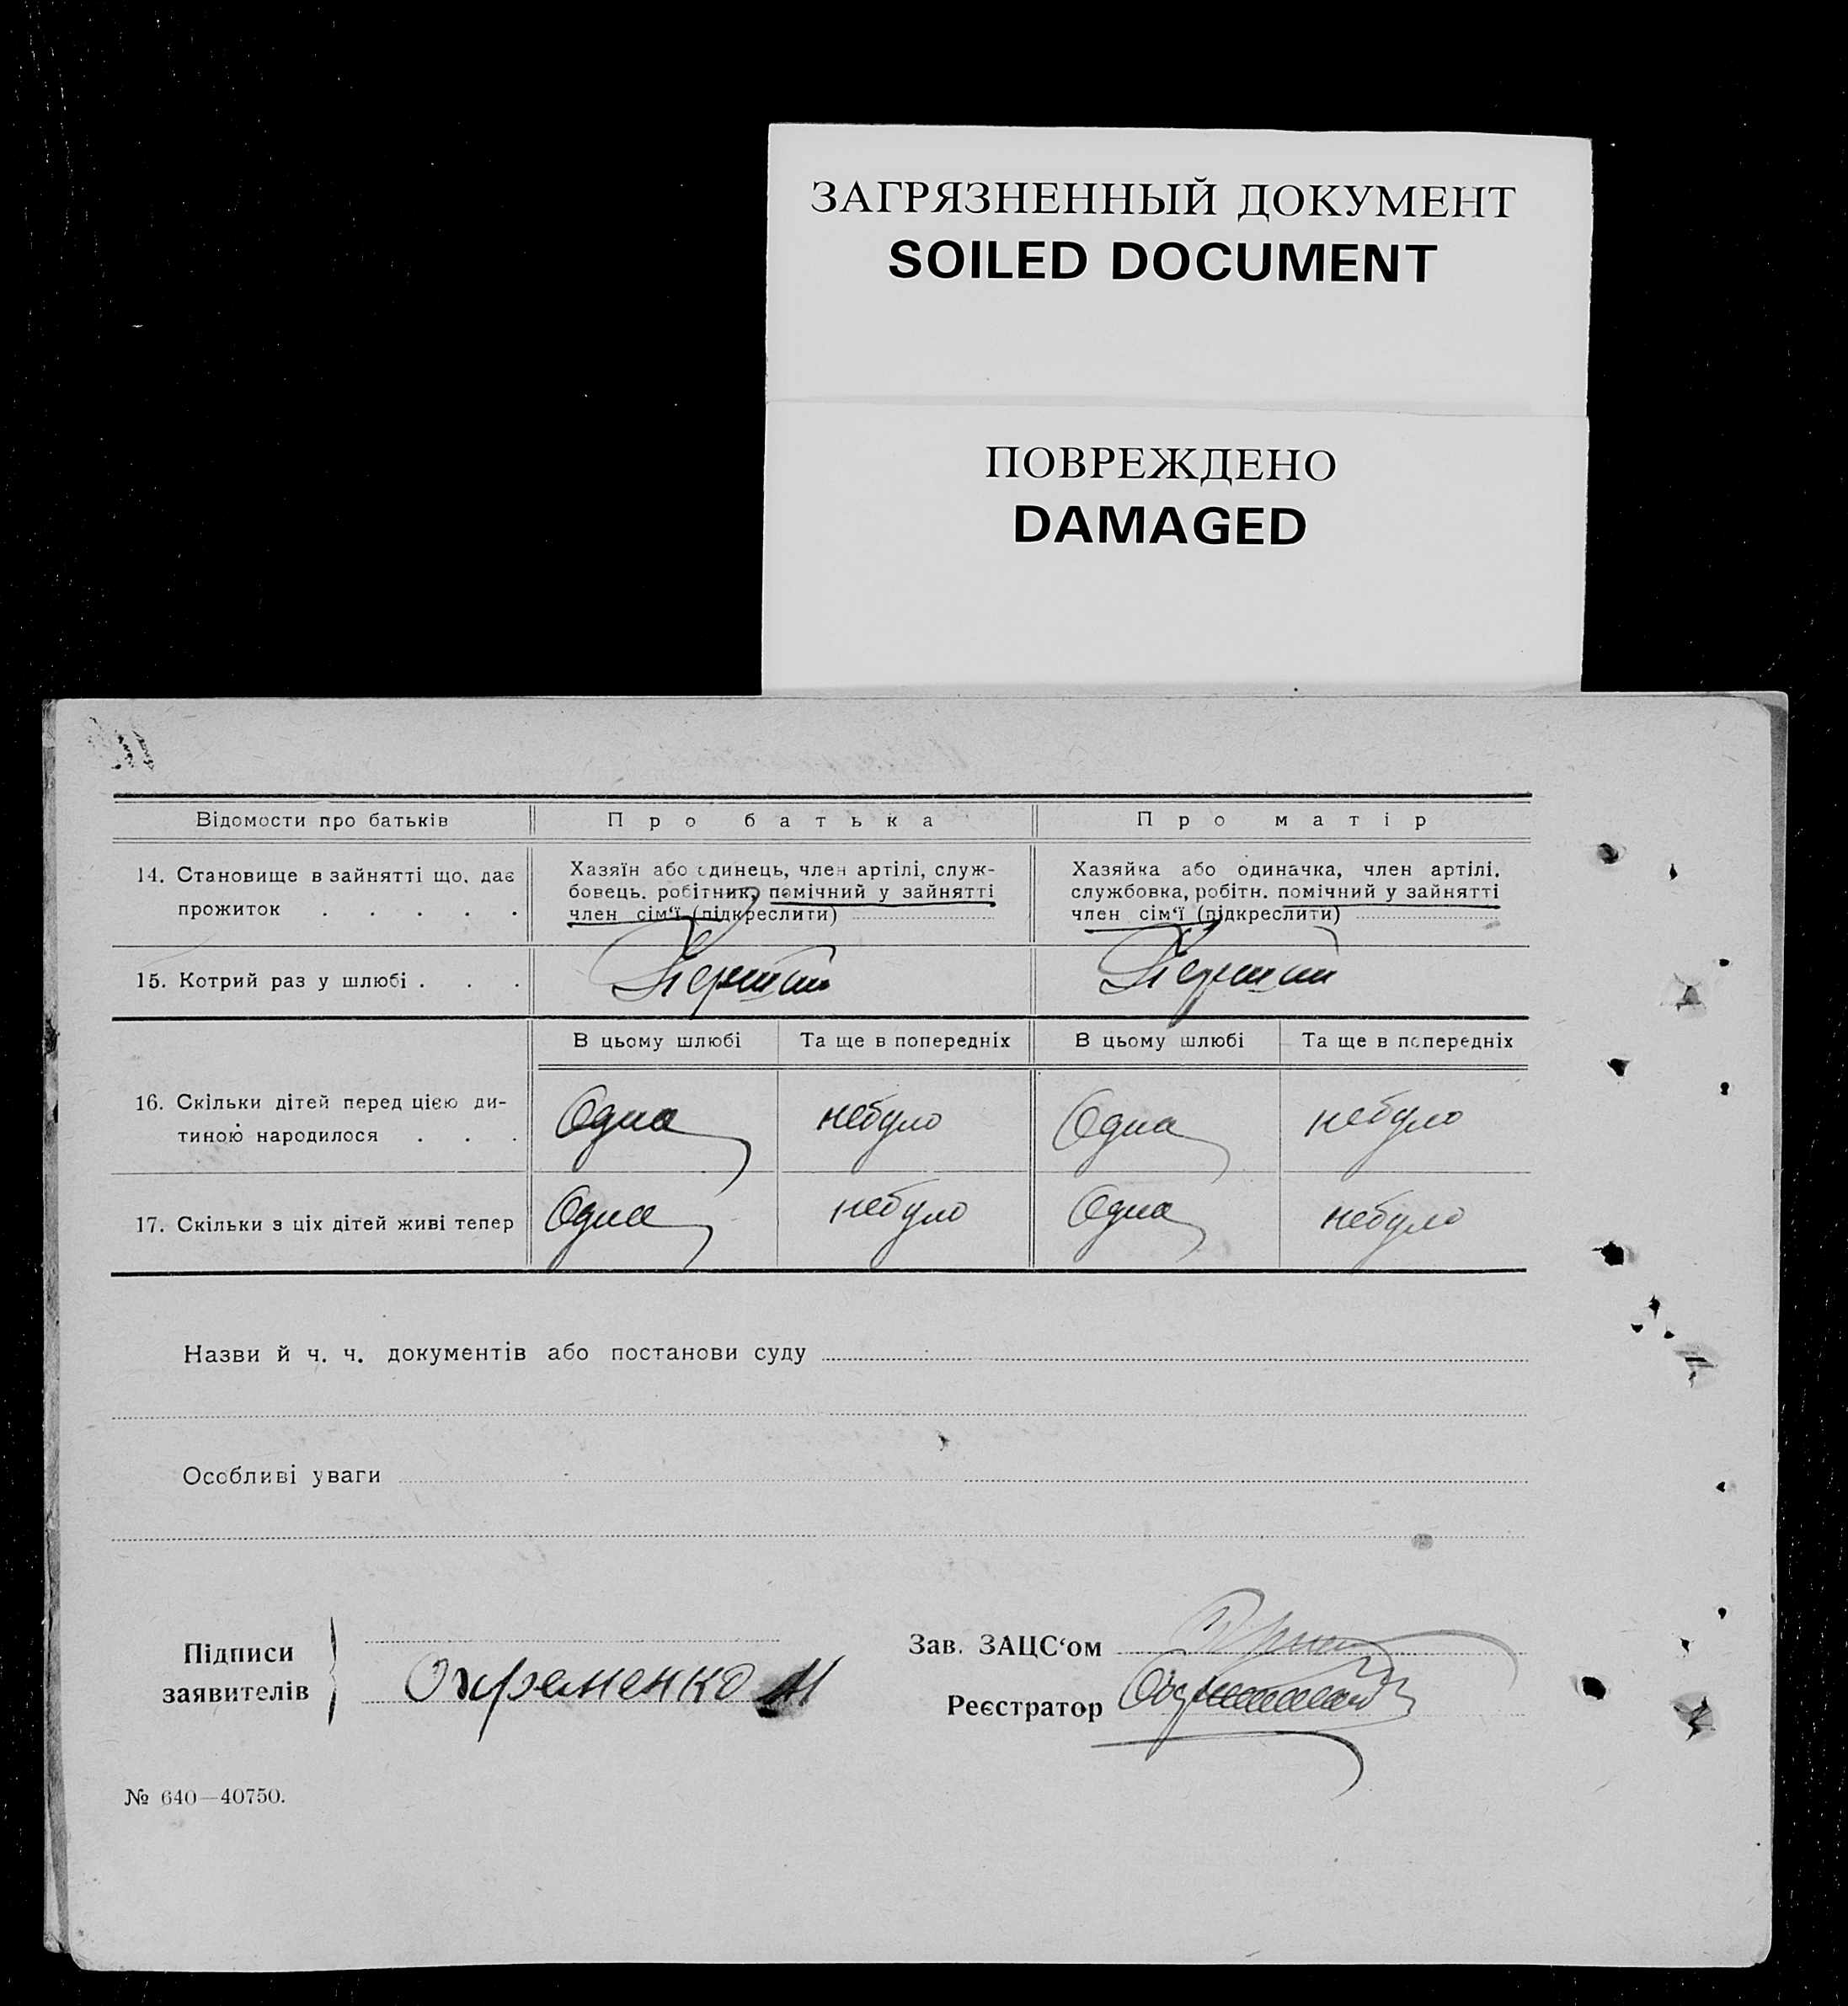 ЗАГРЯЗНЕННЫЙ ДОКУМЕНТ
SOILED DOCUMENT
ПОВРЕЖДЕНО
DAMAGED
Відомости про батьків
Про батька
Про матір
14. Становище в зайнятті що, дає
прожиток . . . . .
Хазяїн або єдинець, член артілі, служ-
бовець. робітник, помічний у зайнятті
член сім'ї (підкреслити)
Хазяйка або одиначка, член артілі.
службовка, робітн. помічний у зайнятті
член сім'ї (підкреслити)
15. Котрий раз у шлюбі . . .
Перший
Перший
В цьому шлюбі
Та ще в попередніх
В цьому шлюбі
Та ще в попередніх
16. Скільки дітей перед цією ди-
тиною народилося . . .
Одна
небуло
Одна
небуло
17. Скільки з ціх дітей живі тепер
Одна
небуло
Одна
небуло
Назви й ч. ч. документів або постанови суду
Особливі уваги
Підписи
заявителів
Охременко М
Зав. ЗАЦС'ом
Реєстратор
№ 640—40750.